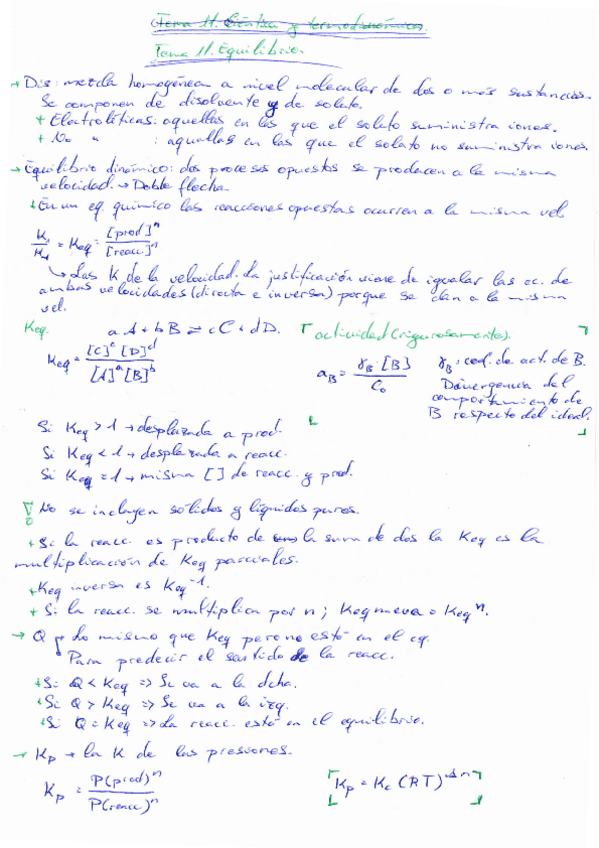 Tema 11. Cinética y termodinámica.
Tema 11. Equilibrio.
→ Dis: mezcla homogénea a nivel molecular de dos o más sustancias.
Se componen de disolvente y de soluto.
+ Electrolíticas: aquellas en las que el soluto suministra iones.
+ No " : aquellas en las que el soluto no suministra iones.
→ Equilibrio dinámico: dos procesos opuestos se producen a la misma
velocidad. → Doble flecha
↓ En un eq. químico las reacciones opuestas ocurren a la misma vel.
K₁/K₋₁ = Keq = [prod]ⁿ/[reacc]ⁿ
↳ Las K de la velocidad. La justificación viene de igualar las ec. de
ambas velocidades (directa e inversa) porque se dan a la misma
vel.
Keq. aA + bB ⇌ cC + dD. actividad (rigurosamente).
Keq = [C]ᶜ [D]ᵈ / [A]ᵃ [B]ᵇ
a_B = γ_B · [B] / C₀
γ_B: coef. de act. de B.
Divergencia del
comportamiento de
B respecto del ideal.
Si Keq > 1 → desplazada a prod.
Si Keq < 1 → desplazada a reacc.
Si Keq = 1 → misma [ ] de reacc. y prod.
No se incluyen sólidos y líquidos puros.
+ Si la reacc. es producto de la suma de dos la Keq es la
multiplicación de Keq parciales.
+ Keq inversa es Keq⁻¹.
+ Si la reacc. se multiplica por n; Keq nueva = Keqⁿ.
→ Q Lo mismo que Keq pero no está en el eq.
Para predecir el sentido de la reacc.
+ Si Q < Keq => Se va a la dcha.
+ Si Q > Keq => Se va a la izq.
+ Si Q = Keq => La reacc. está en el equilibrio.
→ Kp → la K de las presiones.
Kp = P(prod)ⁿ / P(reacc)ⁿ
Kp = Kc (RT)^Δn